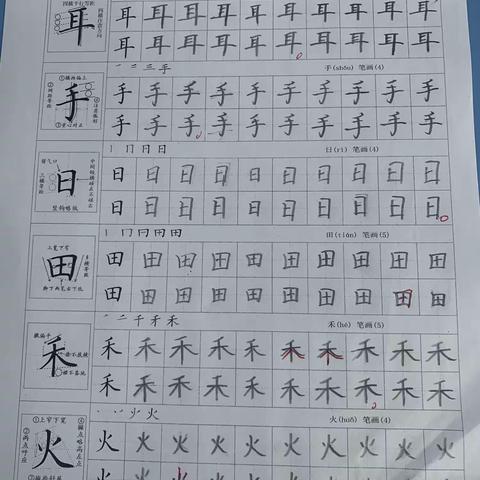 耳 耳 耳 耳 耳 耳 耳 耳 耳 耳
耳 耳 耳 耳 耳 耳 耳 耳 耳
手(shǒu) 笔画(4)
手 手 手 手 手 手 手 手 手 手
手 手 手 手 手 手 手 手 手
丨 冂 日 日 日(rì) 笔画(4)
日 日 日 日 日 日 日 日 日 日
日 日 日 日 日 日 日 日 日
竖钩略放
丨 冂 日 田 田 田(tián) 笔画(5)
上宽下窄
田 田 田 田 田 田 田 田 田 田
田 田 田 田 田 田 田 田 田
一 二 千 禾 禾 禾(hé) 笔画(5)
禾 禾 禾 禾 禾 禾 禾 禾 禾 禾
禾 禾 禾 禾 禾 禾 禾 禾 禾
火 火 火(huǒ) 笔画(4)
①上窄下宽
②两点呼应
火 火 火 火 火 火 火 火 火 火